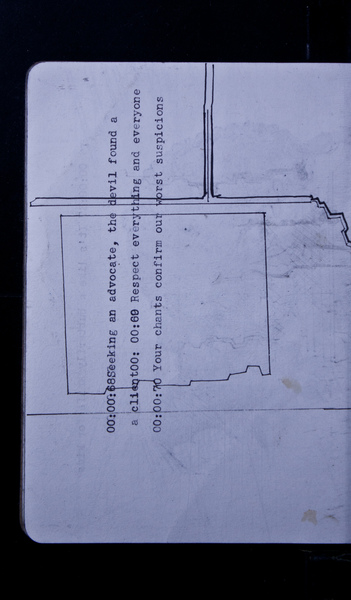 00:00:68Seeking an advocate, the devil found a
a client00: 00:69 Respect everything and everyone
00:00:70 Your chants confirm our worst suspicions